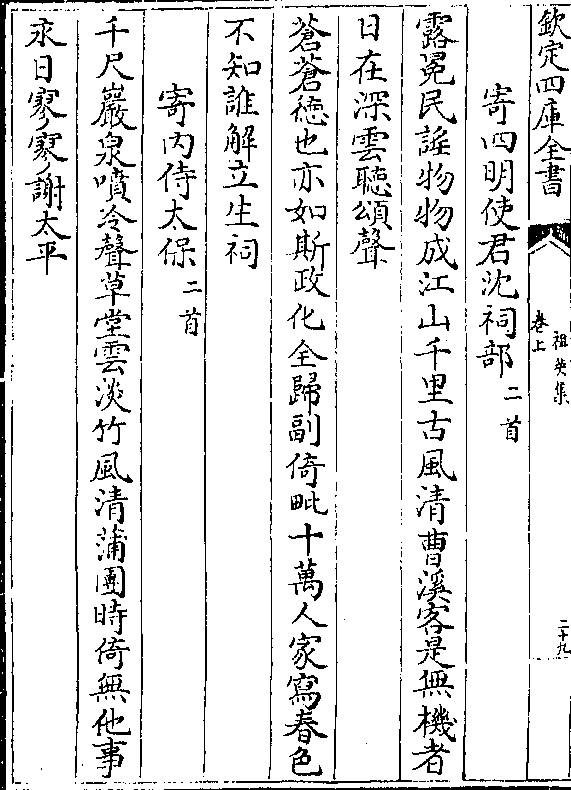 欽定四庫全書
祖英集
卷上
二十九
寄四明使君沈祠部二首
露冕民謡物物成江山千里古風清曹溪客是無機者
日在深雲聽頌聲
蒼蒼徳也亦如斯政化全歸副倚毗十萬人家寫春色
不知誰解立生祠
寄内侍太保二首
千尺巖泉噴冷聲草堂雲淡竹風清蒲團時倚無他事
永日寥寥謝太平